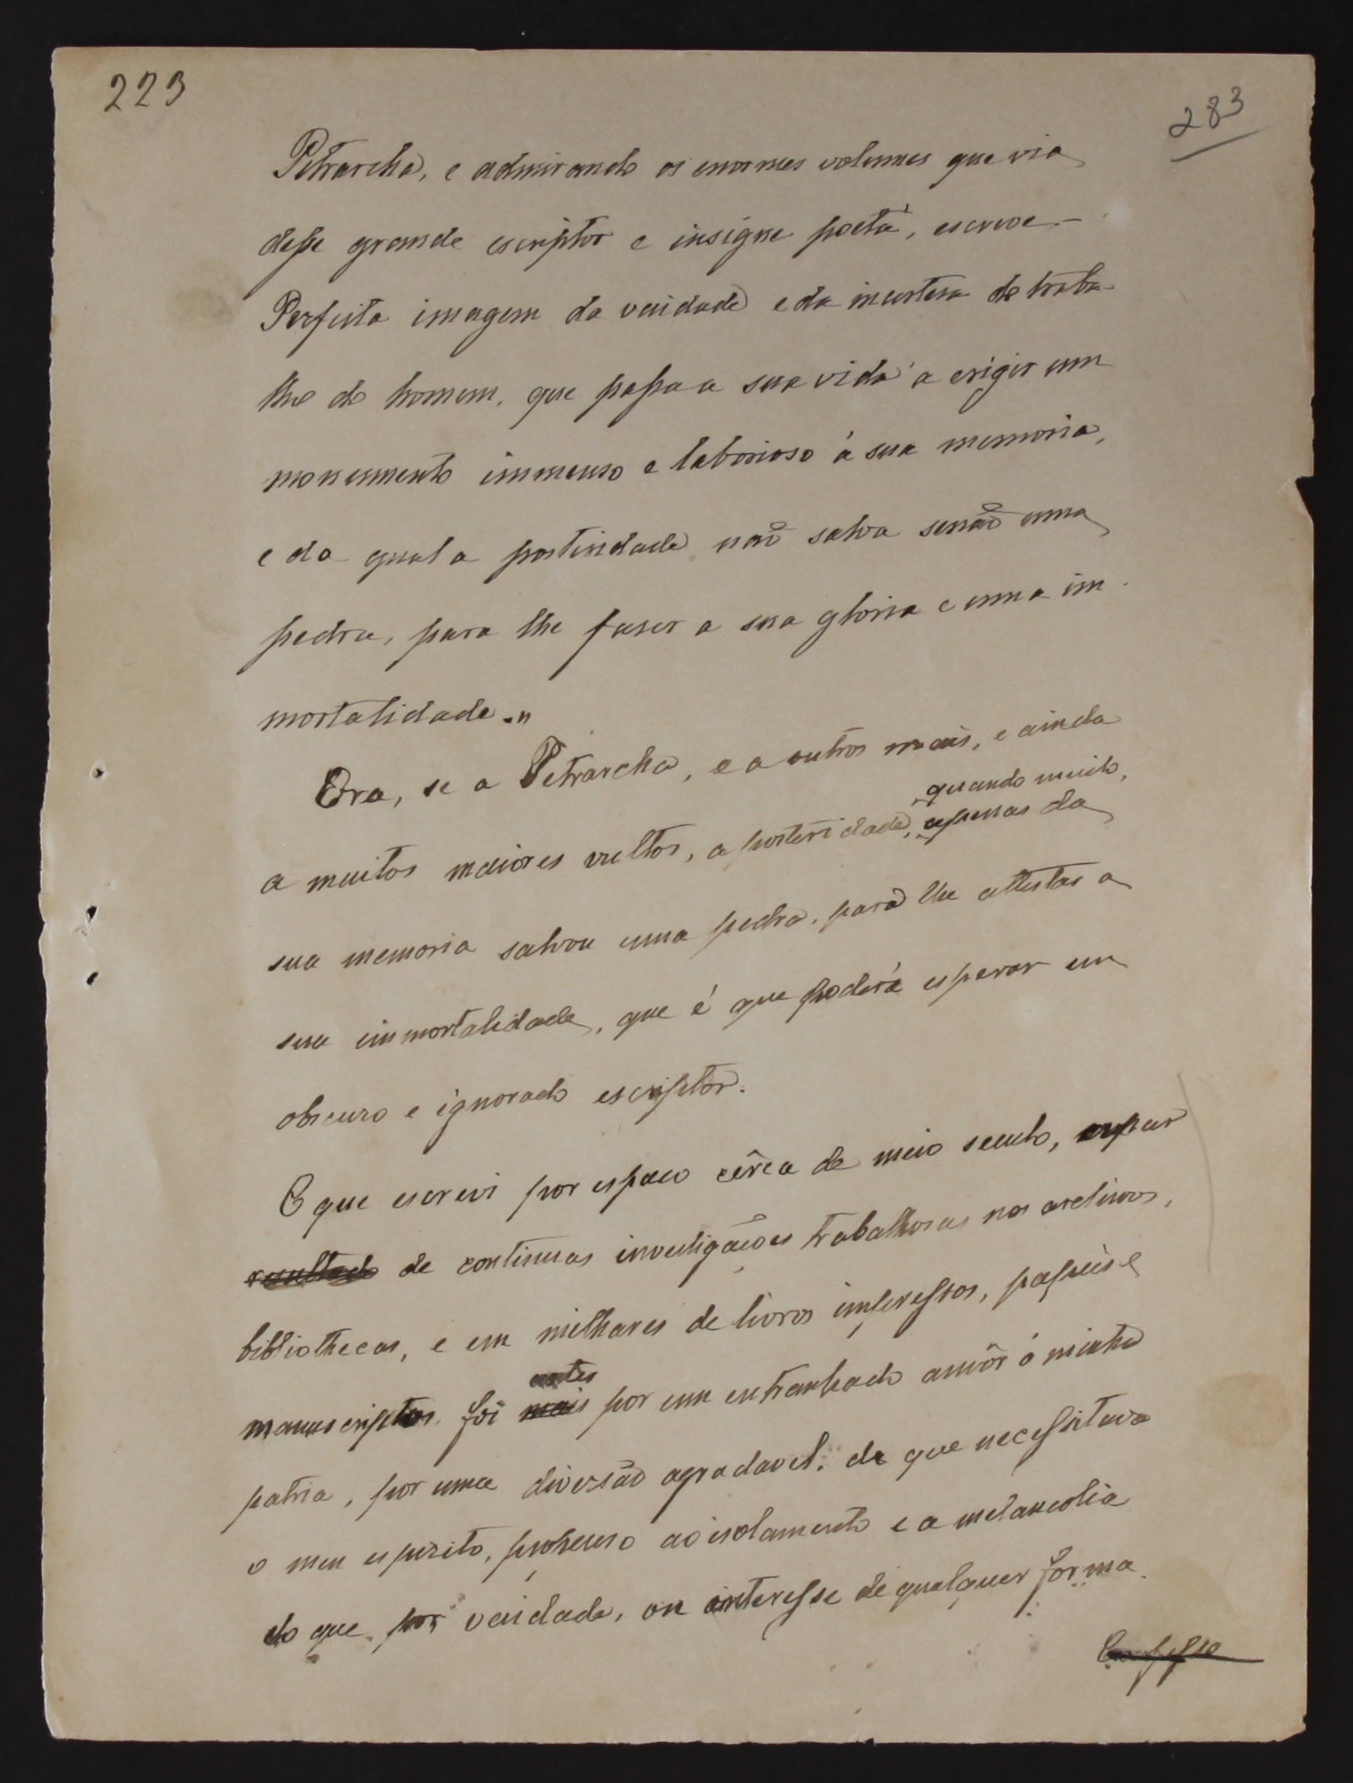 223
283
Petrarcha, e admirando os enormes volumes que via
desse grande escriptor e insigne poeta, escreve -
Perfeita imagem da vaidade e da incertesa do traba-
lho do homem, que passa a sua vida a erigir um
monumento immenso e laborioso á sua memoria,
e do qual a posteridade não salva senão uma
pedra, para lhe faser a sua gloria e uma im-
mortalidade."
Ora, se a Petrarcha, e a outros mais, e ainda
quando muito,
a muitos maiores vultos, a posteridade, apenas da
sua memoria salvou uma pedra, para lhe attestar a
sua immortalidade, que é que poderá esperar um
obscuro e ignorado escriptor.
O que escrevi por espaco cêrca de meio seculo, a par
resultado de continuas investigações trabalhosas nos archivos,
bibliothecas, e em milhares de livros impressos, papeis e
antes
manuscriptos, foi mais por um entranhado amôr á minha
patria, por uma diversão agradavel, de que necessitava
o meu espirito, propenso ao isolamento e a melancolia
do que por vaidade, ou interesse de qualquer forma.
Confesso